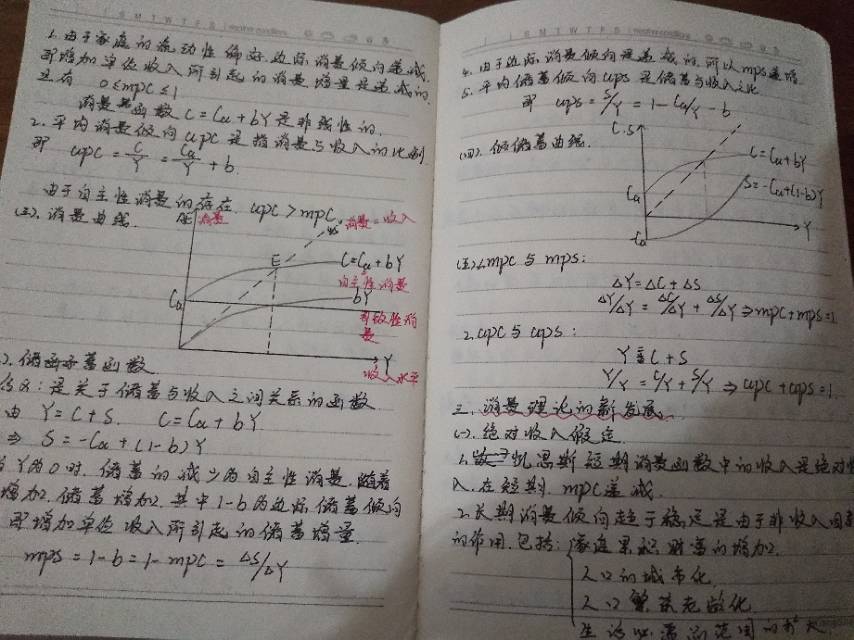 SMTWTFS
1. 由于家庭的流动性偏好,边际消费倾向递减.
即增加单位收入所引起的消费增量是递减的.
且有 0≤mpc≤1
消费函数 C=Ca+bY是非线性的.
2. 平均消费倾向apc是指消费与收入的比例
即 apc=C/Y=Ca/Y+b.
由于自主性消费的存在. apc>mpc.
(三). 消费曲线.
消费
消费=收入
45
E
C=Ca+bY
自主性消费
Ca
bY
引致性消
费
Y
收入水平
). 储蓄函数
含义:是关于储蓄与收入之间关系的函数
由 Y=C+S. C=Ca+bY
⇒ S=-Ca+(1-b)Y
Y为0时.储蓄的减少为自主性消费.随着
增加.储蓄增加.其中1-b为边际储蓄倾向
即增加单位收入所引起的储蓄增量.
mps=1-b=1-mpc=ΔS/ΔY
SMTWTFS
4. 由于边际消费倾向是递减的.所以mps递增
5. 平均储蓄倾向aps是储蓄与收入之比
即 aps=S/Y=1-Ca/Y-b
(四). 储蓄曲线.
C.S
C=Ca+bY
S=-Ca+(1-b)Y
Ca
Y
-Ca
(五)1.mpc与mps:
ΔY=ΔC+ΔS
ΔY/ΔY=ΔC/ΔY+ΔS/ΔY⇒mpc+mps=1.
2.apc与aps:
Y=C+S
Y/Y=C/Y+S/Y⇒apc+aps=1.
三.消费理论的新发展.
(一).绝对收入假定.
1.凯恩斯短期消费函数中的收入是绝对收
入.在短期.mpc递减.
2.长期消费倾向趋于稳定是由于非收入因素
的作用.包括:家庭累积财富的增加.
人口的城市化.
人口繁荣老龄化.
生活必需品范围的扩大.